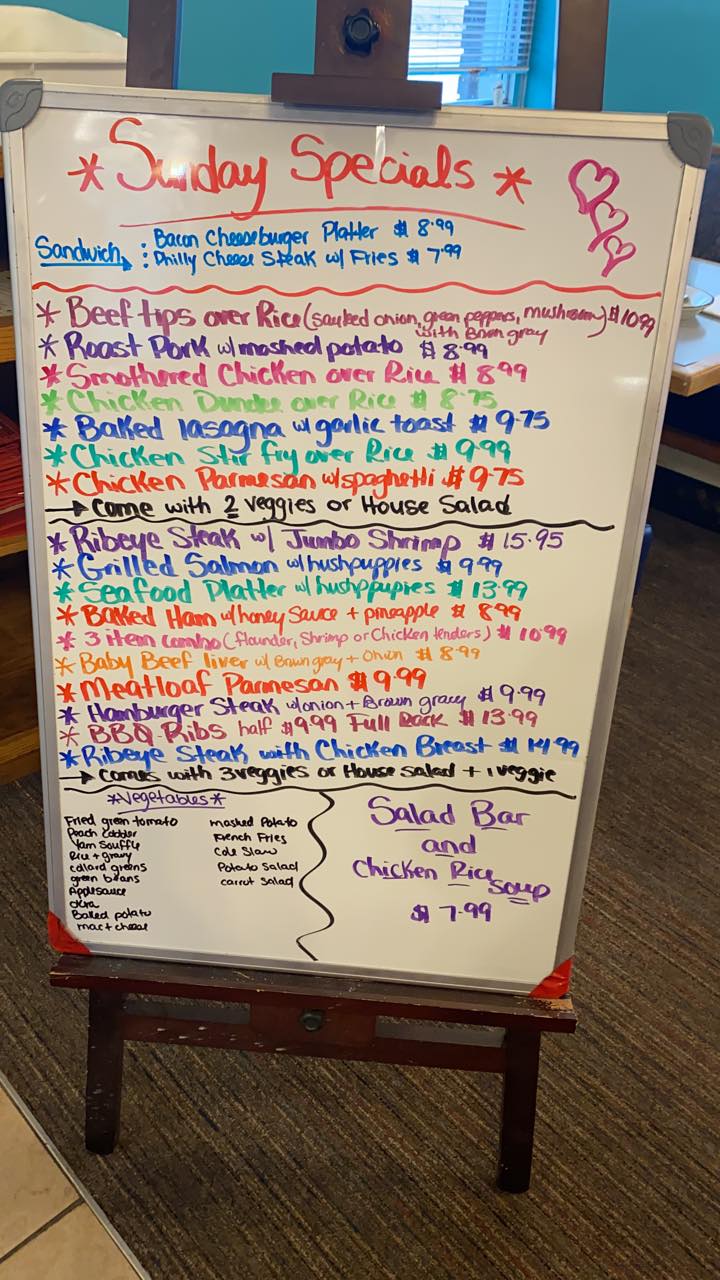 * Sunday Specials *
Sandwich : Bacon Cheeseburger Platter $ 8.99
: Philly Cheese Steak w/ Fries $ 7.99
* Beef tips over Rice (sauteed onion, green peppers, mushroom) $ 10.99
with Brown gravy
* Roast Pork w/ mashed potato $ 8.99
* Smothered Chicken over Rice $ 8.99
* Chicken Dundee over Rice $ 8.75
* Baked lasagna w/ garlic toast $ 9.75
* Chicken Stir fry over Rice $ 9.99
* Chicken Parmesan w/ spaghetti $ 9.75
→ Come with 2 veggies or House Salad
* Ribeye Steak w/ Jumbo Shrimp $ 15.95
* Grilled Salmon w/ hushpuppies $ 9.99
* Seafood Platter w/ hushppupies $ 13.99
* Baked Ham w/ honey sauce + pineapple $ 8.99
* 3 item combo (flounder, Shrimp or Chicken tenders) $ 10.99
* Baby Beef liver w/ Brown gravy + Onion $ 8.99
* Meatloaf Parmesan $ 9.99
* Hamburger Steak w/ onion + Brown gravy $ 9.99
* BBQ Ribs half $9.99 Full Rack $ 13.99
* Ribeye Steak with Chicken Breast $ 14.99
→ Comes with 3 veggies or House Salad + 1 veggie
*Vegetables*
Fried green tomato
Peach Cobbler
Yam Souffle
Rice + gravy
collard greens
green beans
Applesauce
okra
Baked potato
mac + cheese
mashed Potato
French Fries
Cole Slaw
Potato Salad
carrot Salad
Salad Bar
and
Chicken Rice
Soup
$ 7.99